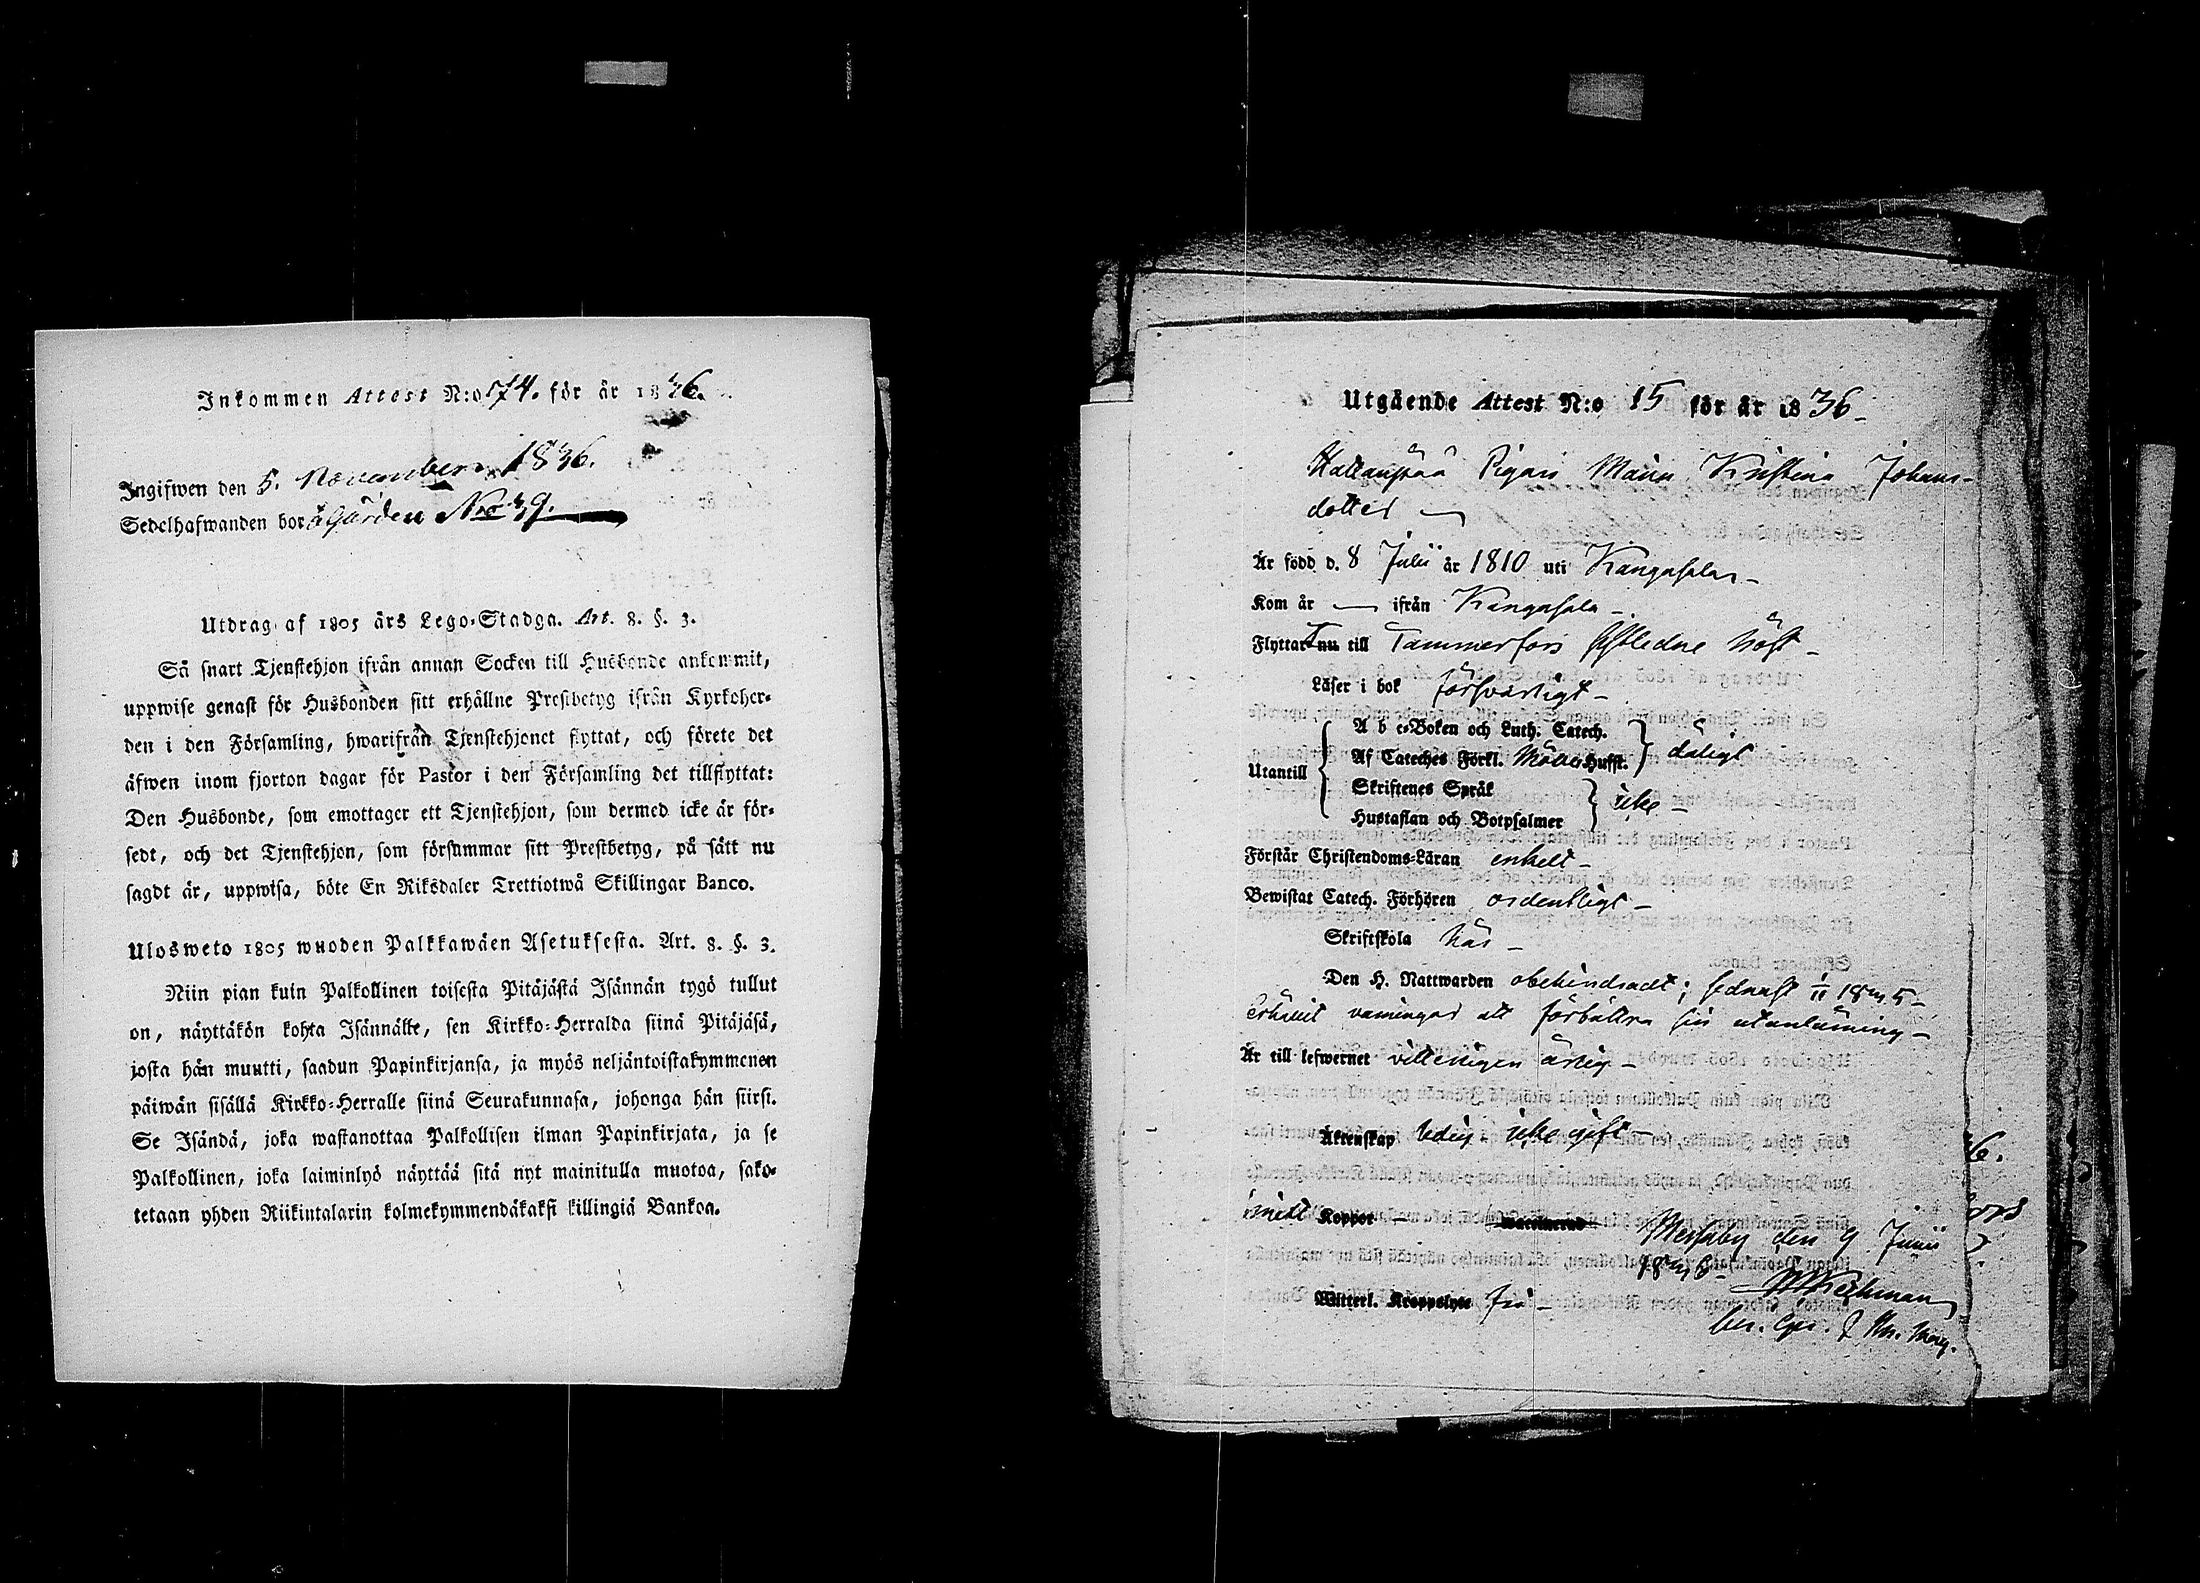 Inkommen Attest N:o 74. för år 1836.
Ingifwen den 5. November 1836.
Sedelhafwanden bor å Gården N:o 39.
Utdrag af 1805 års Lego-Stadga. Art. 8. §. 3.
Så snart Tjenstehjon ifrån annan Socken till Husbonde ankommit,
uppwise genast för Husbonden sitt erhållne Prestbetyg ifrån Kyrkoher-
den i den Församling, hwarifrån Tjenstehjonet flyttat, och förete det
äfwen inom fjorton dagar för Pastor i den Församling det tillflyttat:
Den Husbonde, som emottager ett Tjenstehjon, som dermed icke är för-
sedt, och det Tjenstehjon, som försummar sitt Prestbetyg, på sätt nu
sagdt är, uppwisa, böte En Riksdaler Trettiotwå Skillingar Banco.
Ulosweto 1805 wuoden Palkkawäen Asetuksesta. Art. 8. §. 3.
Niin pian kuin Palkollinen toisesta Pitäjästä Isännän tygö tullut
on, näyttäkön kohta Isännälle, sen Kirkko-Herralda siinä Pitäjäsä,
josta hän muutti, saadun Papinkirjansa, ja myös neljäntoistakymmenen
päiwän sisällä Kirkko-Herralle siinä Seurakunnasa, johonga hän siirsi.
Se Isändä, joka wastanottaa Palkollisen ilman Papinkirjata, ja se
Palkollinen, joka laiminlyö näyttää sitä nyt mainitulla muotoa, sako-
tetaan yhden Riikintalarin kolmekymmendäkaksi killingiä Bankoa.
Utgående Attest N:o 15 för år 1836
Pigan Maria Kristina Johans-
dotter
Är född d. 8 Julii år 1810 uti Kangasala
Kom år — ifrån Kangasala
Flyttar nu till Tammerfors sistledne höst
Läser i bok försvarligt
Utantill
A b c-Boken och Luth. Catech.
Af Cateches Förkl. Hufst.
dåligt
Skriftenes Språk
Hustaflan och Botpsalmer
icke
Förstår Christendoms-Läran enkelt
Bewistat Catech. Förhören ordentligt
Skriftskola här
Den H. Nattwarden obehindradt; sednast 1/11 1835
Erhållit varningar att förbättra sin utanläsning
Är till lefwernet vitterligen ärlig
Äktenskap ledig icke gift
Koppor Waccinerad
Messuby den 9 Junii
1836
Witterl. Kroppslyte fri